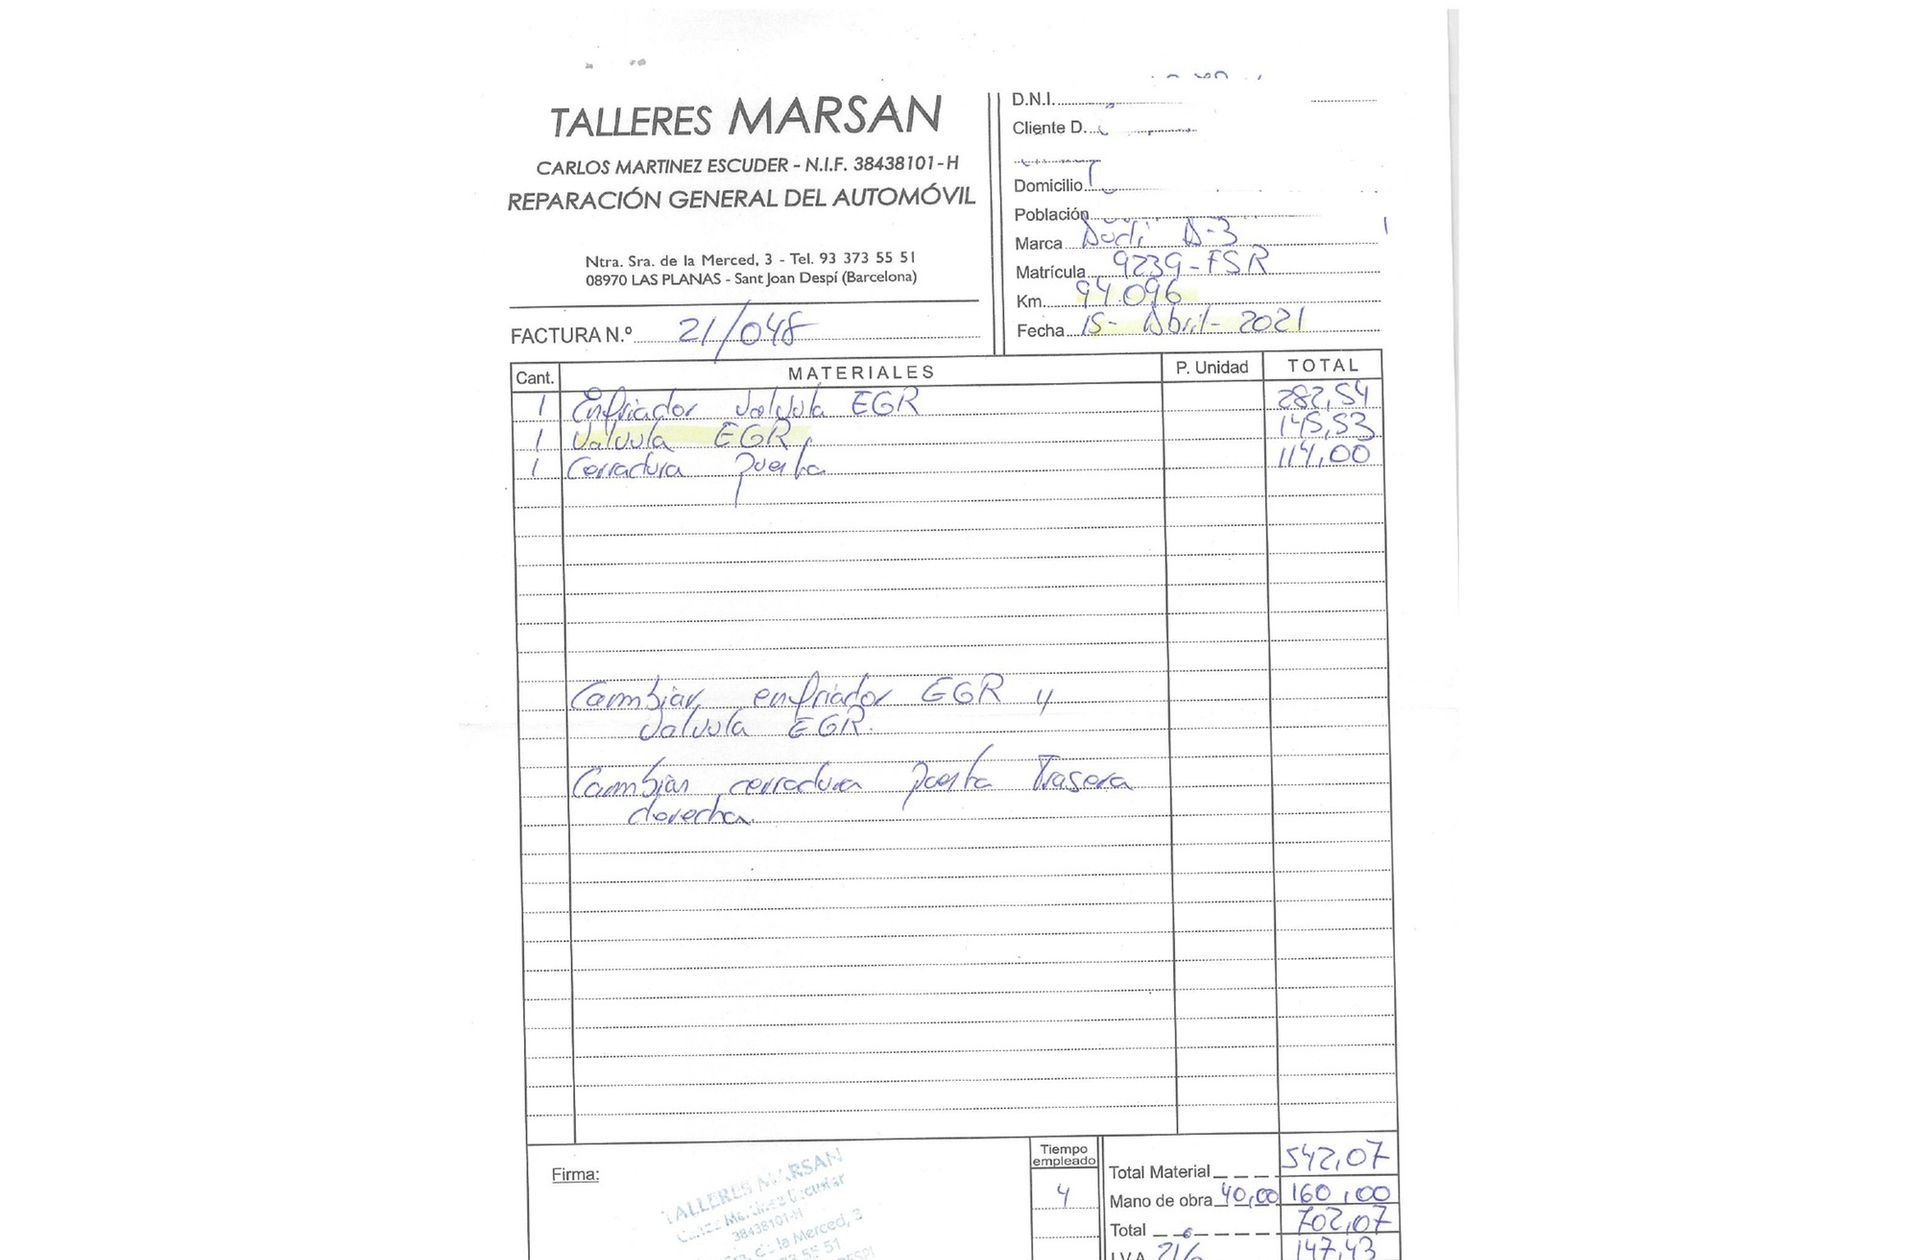 TALLERES MARSAN
CARLOS MARTINEZ ESCUDER - N.I.F. 38438101-H
REPARACIÓN GENERAL DEL AUTOMÓVIL
Ntra. Sra. de la Merced, 3 - Tel. 93 373 55 51
08970 LAS PLANAS - Sant Joan Despí (Barcelona)
FACTURA N.º 21/048
D.N.I.
Cliente D.
Domicilio
Población
Marca Audi A-3
Matrícula 9239-FSR
Km. 94.096
Fecha 15- Abril- 2021
Cant. MATERIALES P. Unidad TOTAL
1 Enfriador valvula EGR 282,54
1 Valvula EGR 145,53
1 Cerradura puerta 114,00
Cambiar enfriador EGR y
valvula EGR.
Cambiar cerradura puerta Trasera
derecha.
Firma:
TALLERES MARSAN
38438101-H
de la Merced, 3
Tiempo
empleado
4
Total Material 542,07
Mano de obra 40,00 160,00
Total 702,07
I.V.A. 21% 147,43